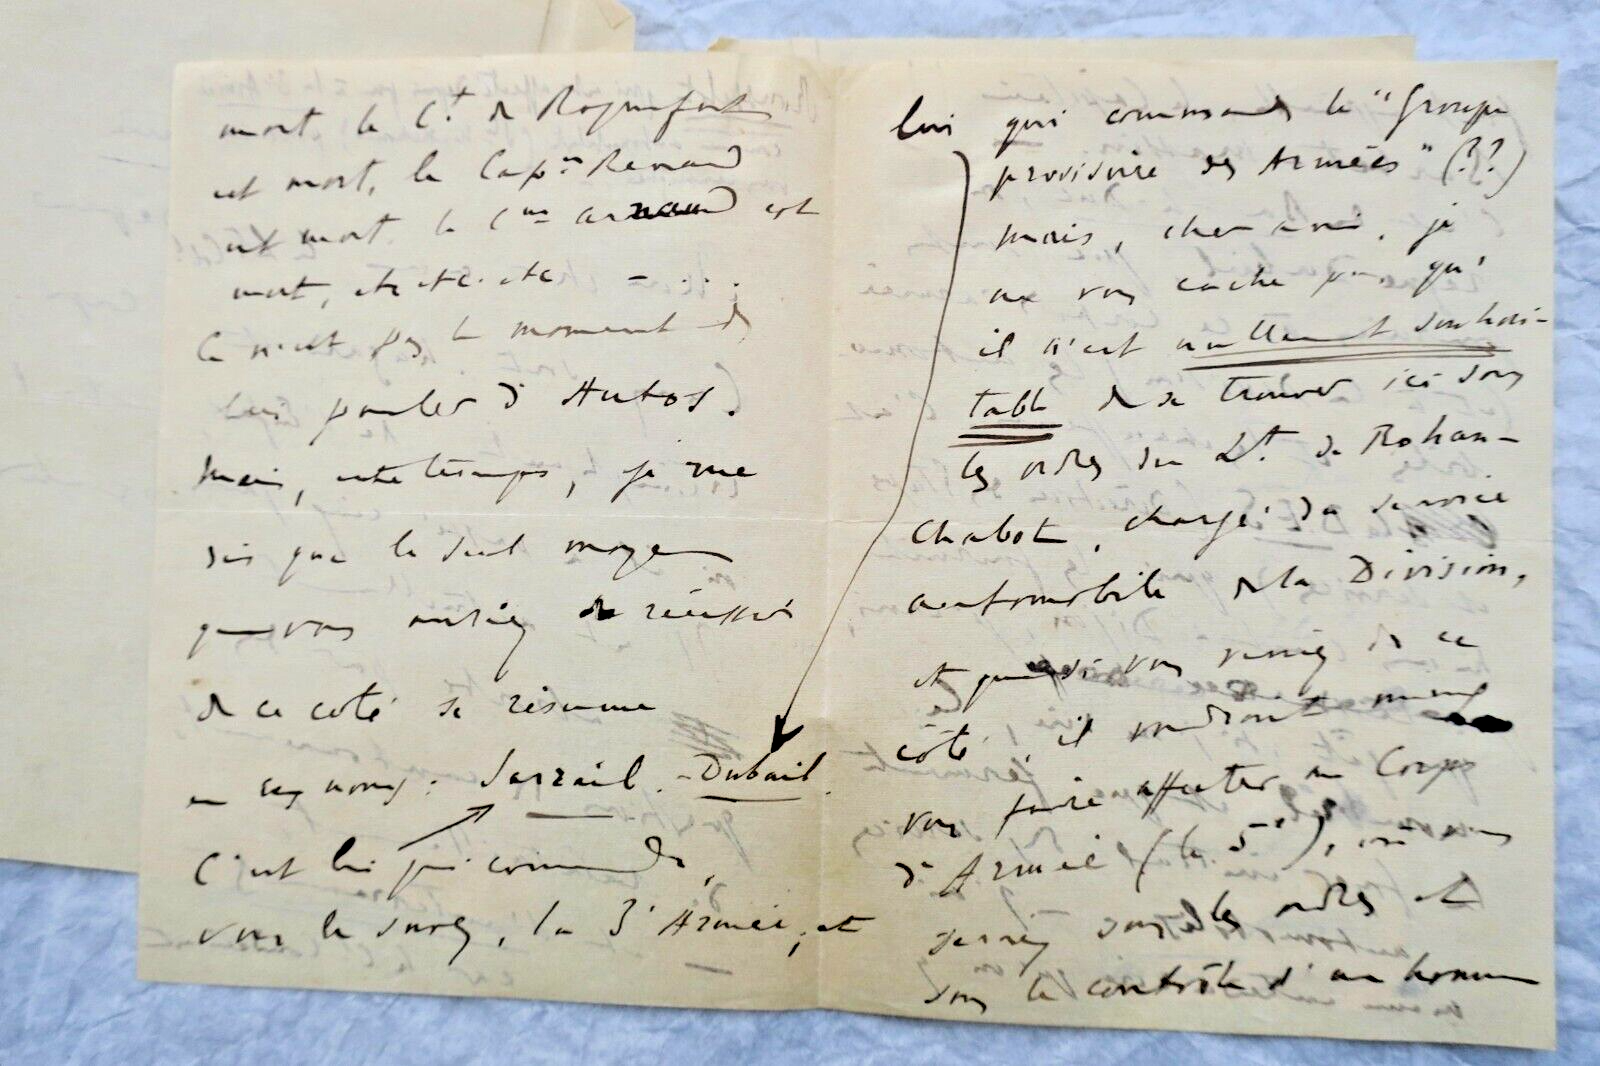 mort, le Ct. de Roquefort
est mort, le Capne Renaud
est mort. le Cne est
mort, etc etc. etc - . . .
Ce n'est pas le moment de
lui parler d'Autos.
Mais, entre temps, je me
dis que le seul moyen
que vous auriez de réussir
de ce côté se résume
en ces noms : Sarrail - Dubail.
C'est lui qui commande,
vous le savez, la 3e Armée, et
lui qui commande le "Groupe
provisoire des Armées" (??)
Mais, cher ami, je
ne vous cache pas qu'
il n'est nullement souhai-
table de se trouver ici sous
les ordres du Lt. de Rohan-
Chabot, chargé du service
automobile de la Division,
et que si vous veniez de ce
côté, il vaudrait mieux
vous faire affecter au Corps
d'Armée (le 5e), où vous
seriez sous les ordres et
sous le contrôle d'un homme